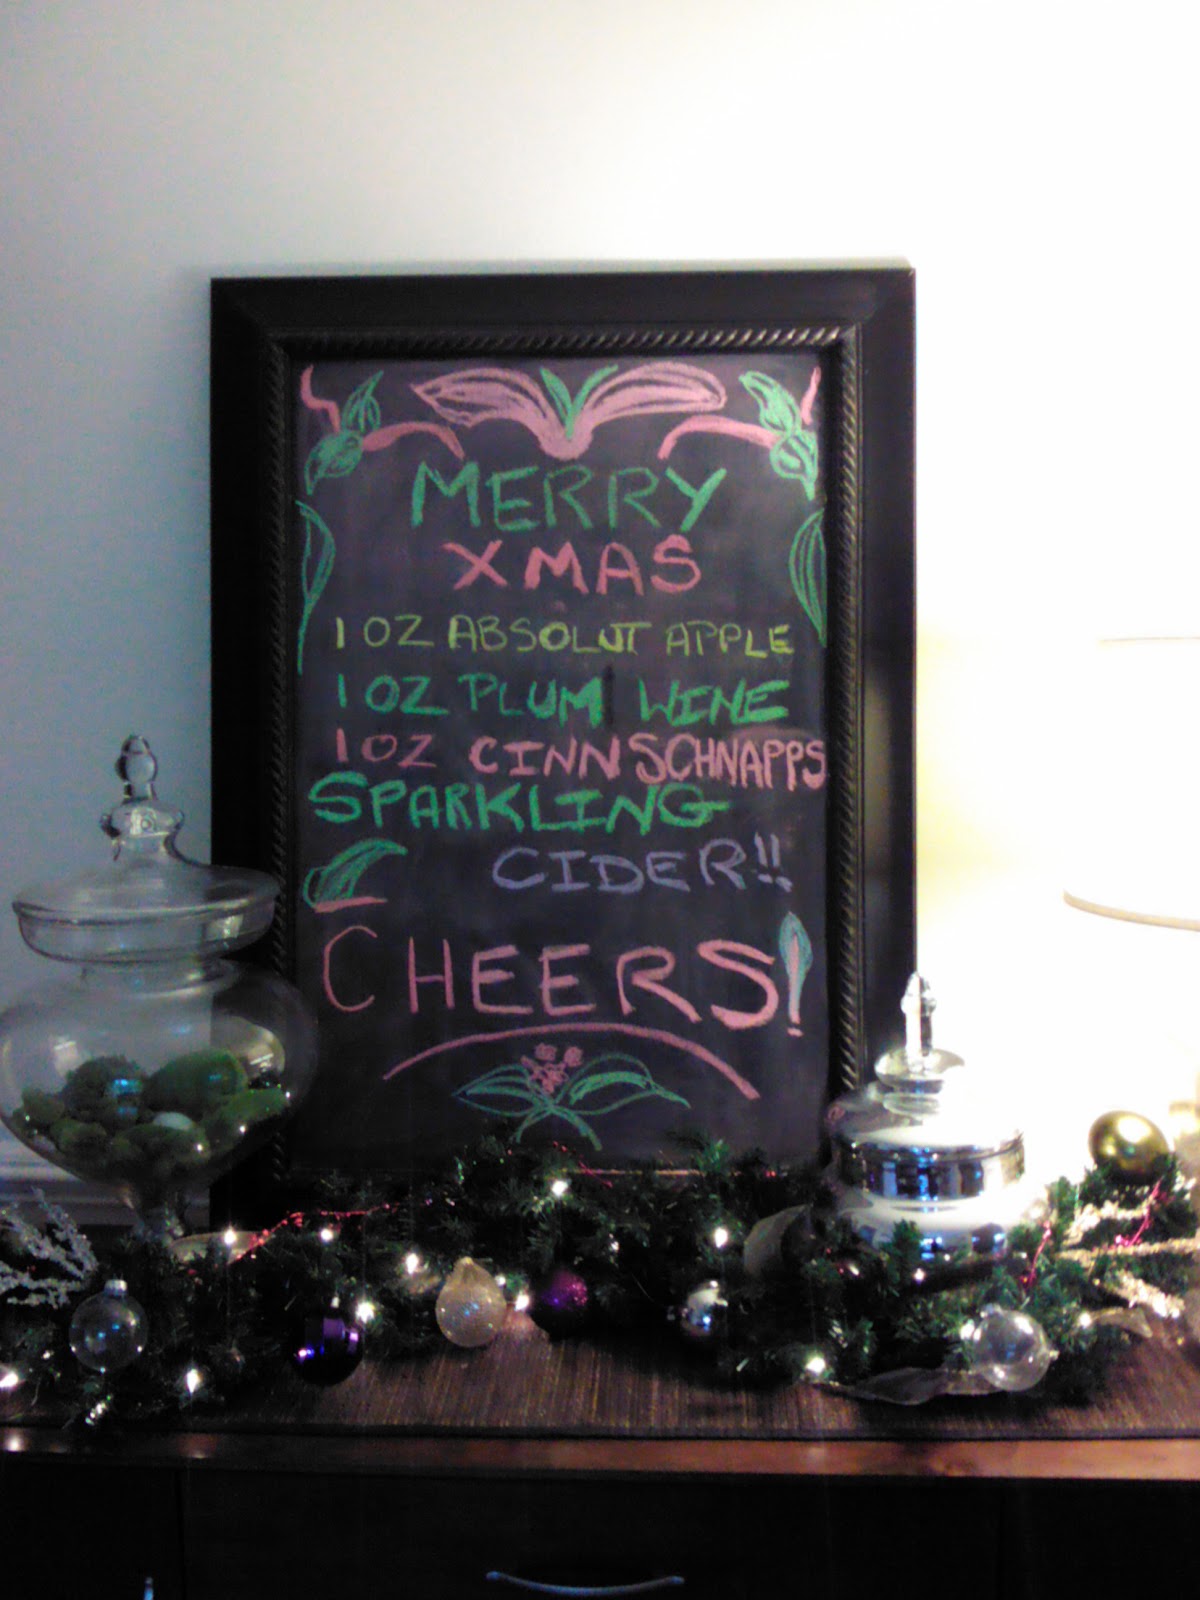 MERRY
XMAS
1 OZ ABSOLUT APPLE
1 OZ PLUM WINE
1 OZ CINN SCHNAPPS
SPARKLING
CIDER!!
CHEERS!